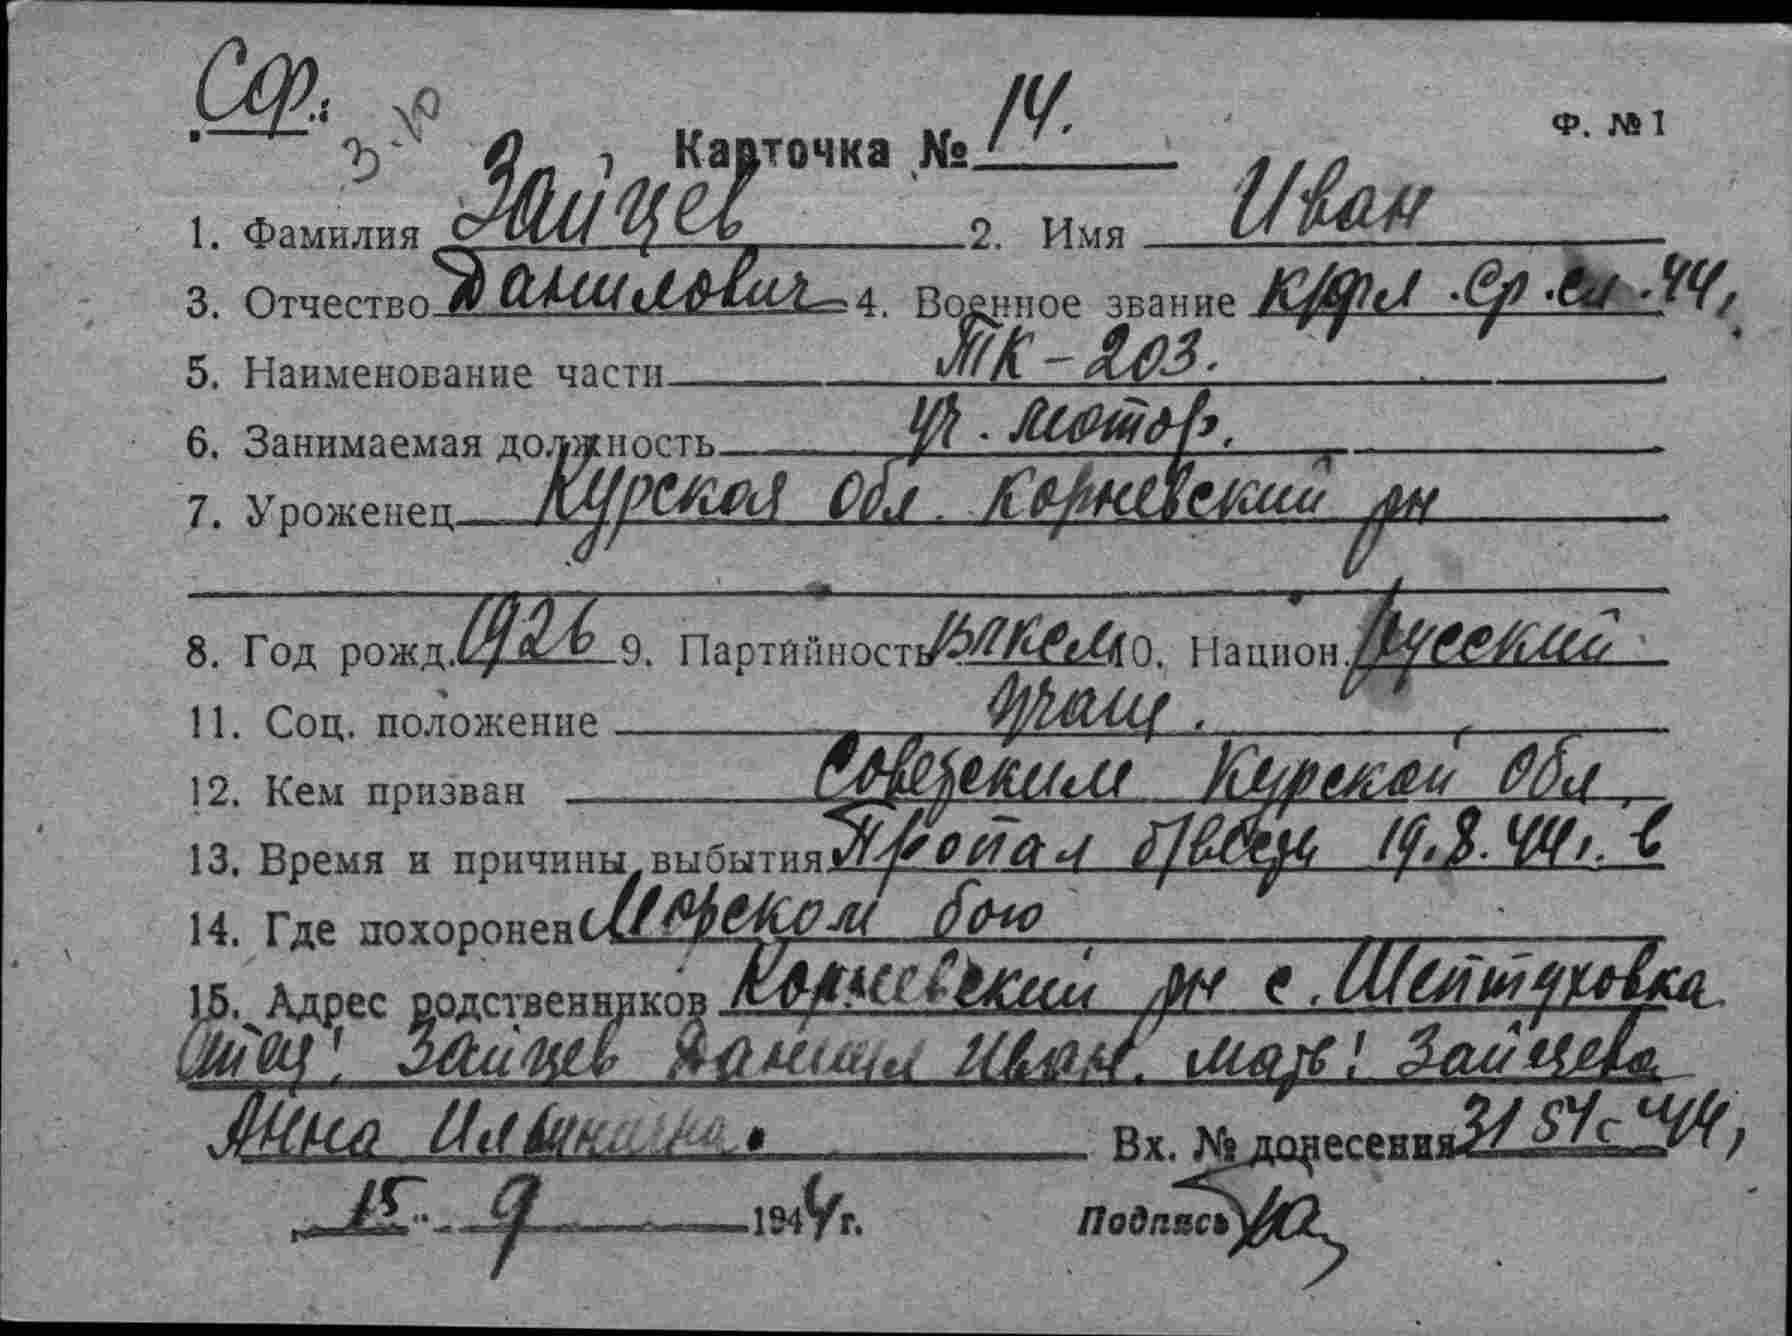 Сф.
3-10
Карточка № 14.
Ф. № 1
1. Фамилия Зайцев 2. Имя Иван
3. Отчество Данилович 4. Военное звание к/фл .Ср.сл.44,
5. Наименование части ТК-203.
6. Занимаемая должность уч. мотор.
7. Уроженец Курская обл. Корневский рн
8. Год рожд. 1926 9. Партийность влксм 10. Национ. русский
11. Соц. положение учащ.
12. Кем призван Советским Курской обл.
13. Время и причины выбытия Пропал б/вести 19.8.44г. в
14. Где похоронен Морском бою
15. Адрес родственников Корневский рн с. Шептуховка
Отец! Зайцев Даниил Иван. мать! Зайцева
Анна Ильинична.
Вх. № донесения 3151с 44,
15 9 1944 г. Подпись